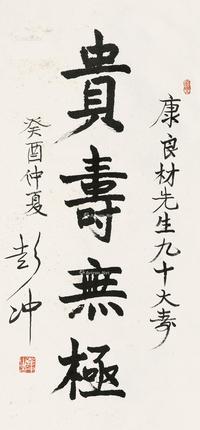 康良材先生九十大壽
貴壽無極
癸酉仲夏
彭冲